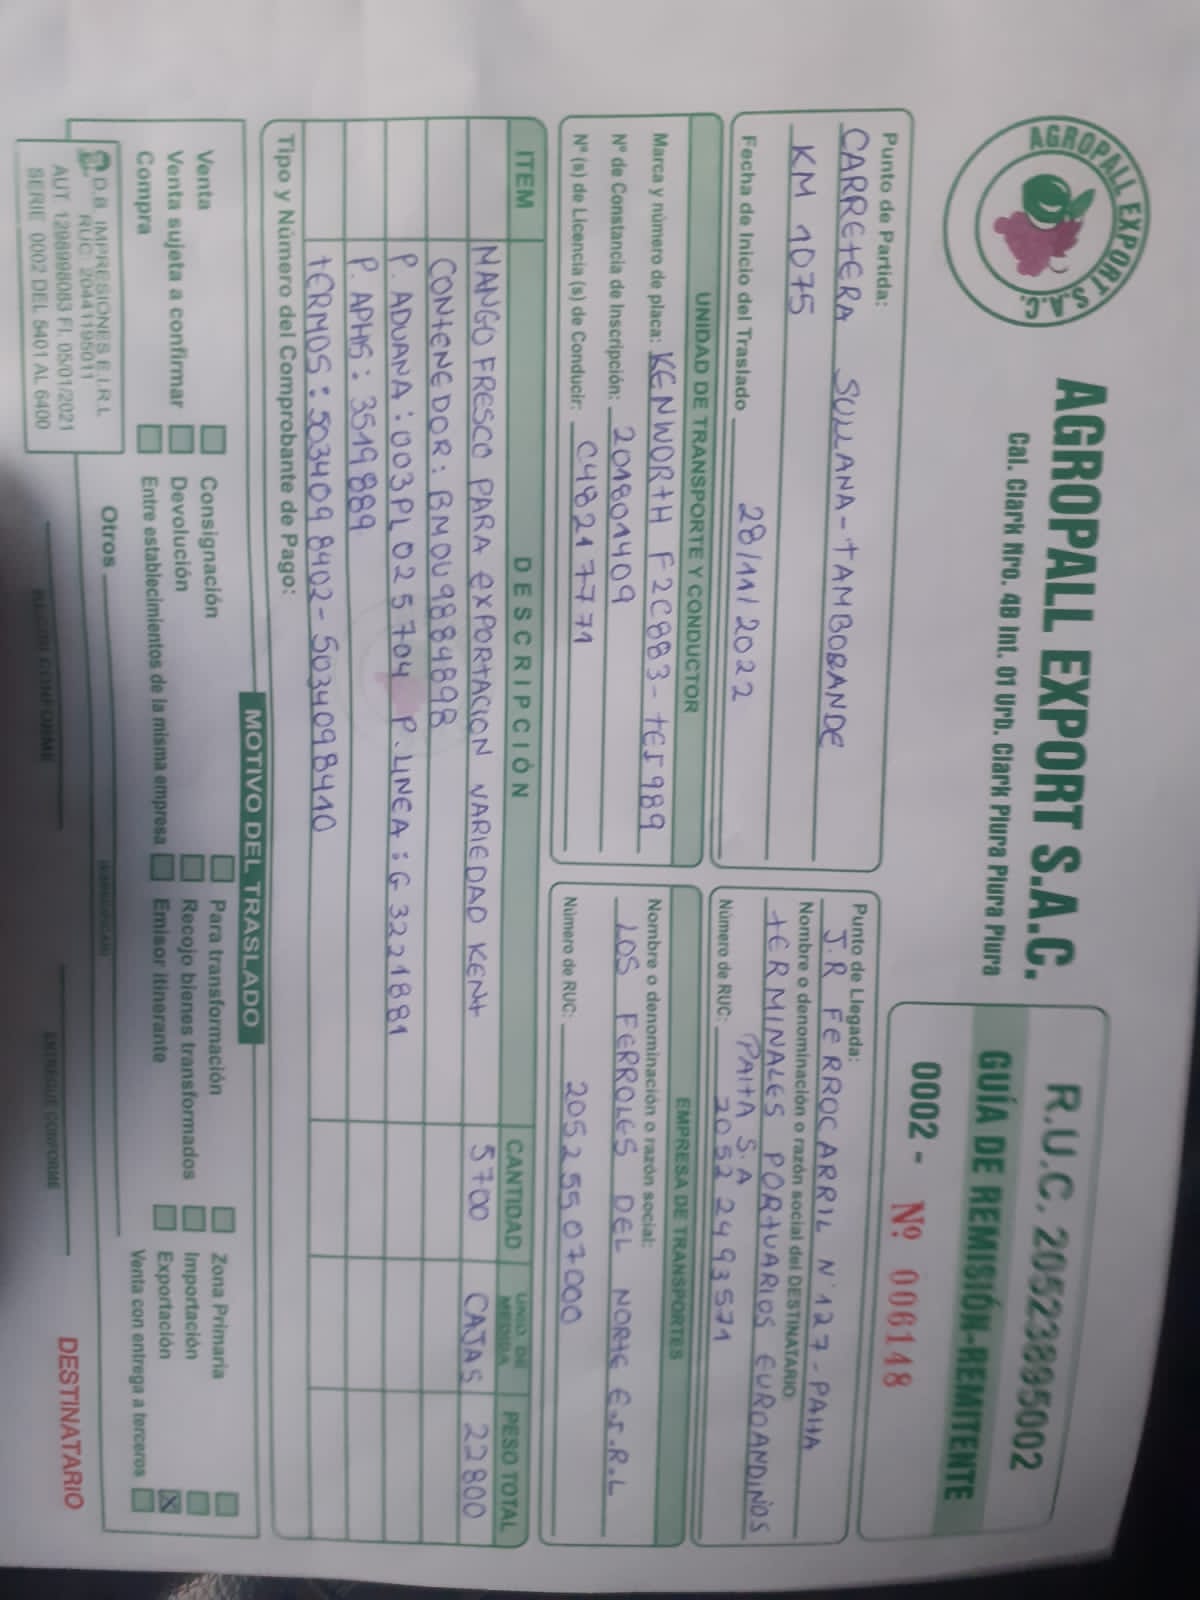 AGROPALL EXPORT S.A.C.
AGROPALL EXPORT S.A.C.
Cal. Clark Nro. 4B Int. 01 Urb. Clark Piura Piura Piura
R.U.C. 20523895002
GUÍA DE REMISIÓN-REMITENTE
0002 - Nº 006148
Punto de Partida:
CARRETERA SULLANA - TAMBOGRANDE
KM 1075
Fecha de Inicio del Traslado 28/11/2022
Punto de Llegada:
J.R FERROCARRIL N°127 - PAITA
Nombre o denominación o razón social del DESTINATARIO
TERMINALES PORTUARIOS EUROANDINOS
PAITA S.A
Número de RUC: 20522493571
UNIDAD DE TRANSPORTE Y CONDUCTOR
Marca y número de placa: KENWORTH F2C883 - TEJ989
Nº de Constancia de Inscripción: 201801409
Nº (s) de Licencia (s) de Conducir: C48217771
EMPRESA DE TRANSPORTES
Nombre o denominación o razón social:
LOS FERROLES DEL NORTE E.I.R.L
Número de RUC: 20525507000
ITEM DESCRIPCIÓN CANTIDAD UNID. DE MEDIDA PESO TOTAL
MANGO FRESCO PARA EXPORTACION VARIEDAD KENT 5700 CAJAS 22800
CONTENEDOR: BMOU9884898
P. ADUANA: 003PL025704 P. LINEA: G3221881
P. APHS: 3519889
TERMOS: 5034098402 - 5034098410
Tipo y Número del Comprobante de Pago:
MOTIVO DEL TRASLADO
Venta Consignación Para transformación Zona Primaria
Venta sujeta a confirmar Devolución Recojo bienes transformados Importación
Compra Entre establecimientos de la misma empresa Emisor itinerante Exportación X
Venta con entrega a terceros
Otros
D.B. IMPRESIONES E.I.R.L
RUC: 20441195011
AUT. 1298998083 FI. 05/01/2021
SERIE 0002 DEL 5401 AL 6400
RECIBI CONFORME
ENTREGUE CONFORME
DESTINATARIO